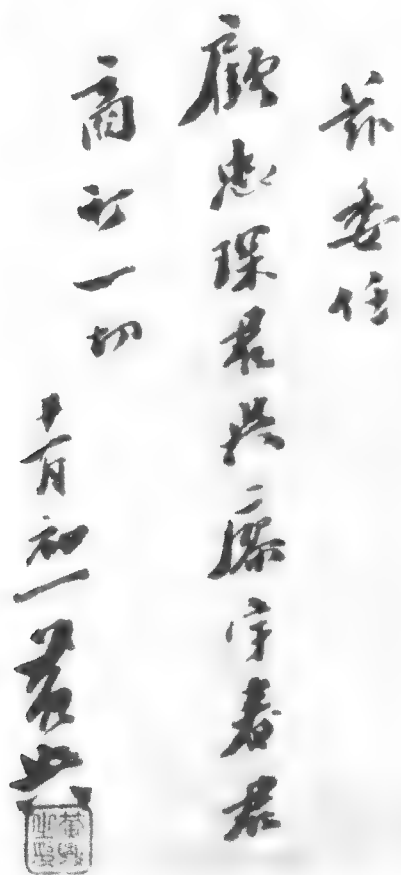 茲委任
顧忠琛君與廖宇春君
商訂一切
十一月初一 黃興